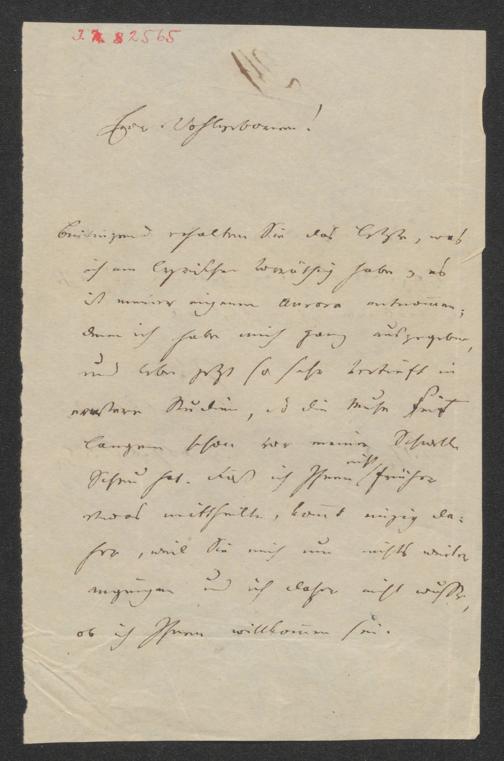 Euer Wohlgeboren!
beikommend erhalten Sie das Letzte, was
ich an lyrischen vorräthig habe, es
ist meiner eigenen Aurora entnommen;
denn ich habe mich ganz ausgegeben,
und lebe jetzt so sehr vertieft in
ernstere Studien, daß die Muse seit
langem schon vor meiner Schwelle
Scheu hat. Daß ich Ihnen nicht früher
etwas mittheilte, kommt einzig da-
her, weil Sie mich um nichts weiter
angingen und ich daher nicht wußte,
ob ich Ihnen willkommen sei.